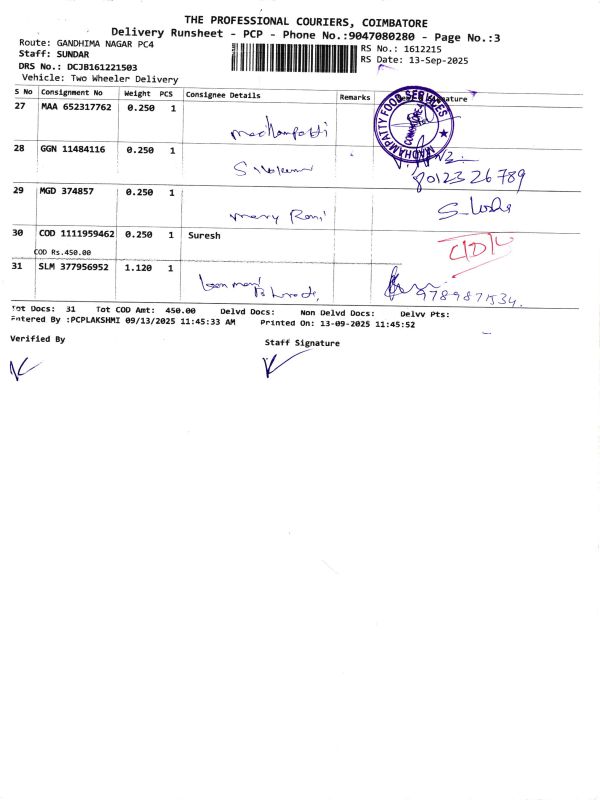 THE PROFESSIONAL COURIERS, COIMBATORE
Delivery Runsheet - PCP - Phone No.:9047080280 - Page No.:3
Route: GANDHIMA NAGAR PC4
Staff: SUNDAR
DRS No.: DCJB161221503
Vehicle: Two Wheeler Delivery
RS No.: 1612215
RS Date: 13-Sep-2025
S No Consignment No Weight PCS Consignee Details Remarks
27 MAA 652317762 0.250 1
MADHAMPATTY FOOD SERVICES
28 GGN 11484116 0.250 1
8012326789
29 MGD 374857 0.250 1
Mery Rani
30 COD 1111959462 0.250 1 Suresh
COD Rs.450.00
31 SLM 377956952 1.120 1
9789871534
Tot Docs: 31 Tot COD Amt: 450.00 Delvd Docs: Non Delvd Docs: Delvv Pts:
Entered By :PCPLAKSHMI 09/13/2025 11:45:33 AM Printed On: 13-09-2025 11:45:52
Verified By
Staff Signature